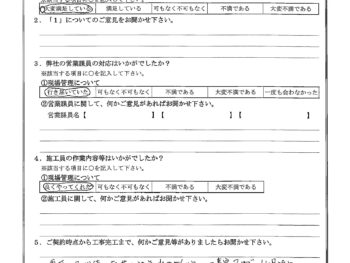 大変満足している 満足している 可もなく不可もなく 不満である 大変不満である
2．「1」についてのご意見をお聞かせ下さい。
3．弊社の営業職員の対応はいかがでしたか？
※該当する項目に○を記入して下さい。
①現場管理について
行き届いていた 可もなく不可もなく 不満である 大変不満である 一度も会わなかった
②営業職員に関して、何かご意見があればお聞かせ下さい。
営業職員名【 】【 】【 】
4．施工員の作業内容等はいかがでしたか？
※該当する項目に○を記入して下さい。
①現場管理について
良くやってくれた 可もなく不可もなく 不満である 大変不満である
②施工員に関して、何かご意見があればお聞かせ下さい。
5．ご契約時点から工事完工まで、何かご意見等がありましたらお聞かせ下さい。